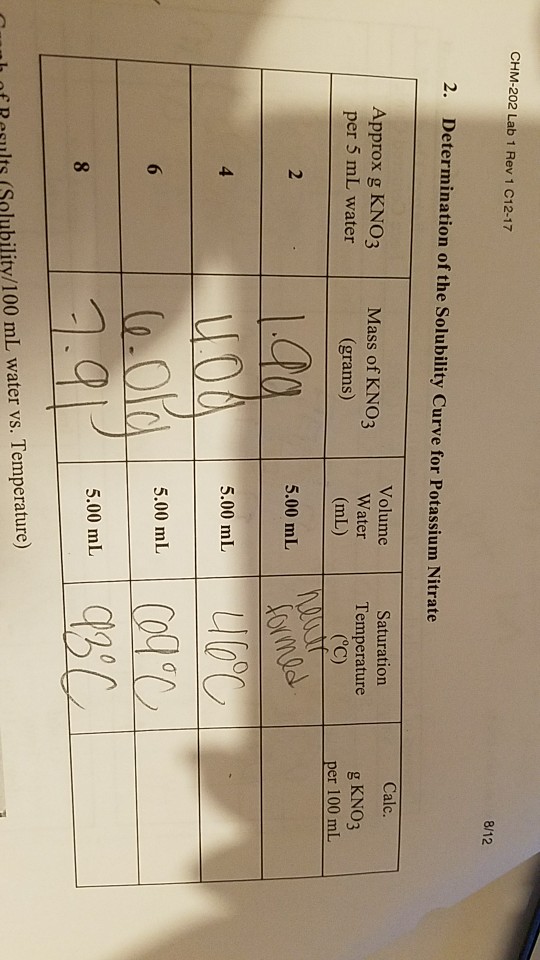 CHM-202 Lab 1 Rev 1 C12-17
8/12
2. Determination of the Solubility Curve for Potassium Nitrate
Approx g KNO3 per 5 mL water
Mass of KNO3 (grams)
Volume Water (mL)
Saturation Temperature (°C)
Calc. g KNO3 per 100 mL
2 1.9g 5.00 mL never formed
4 4.0g 5.00 mL 46°C
6 6.01g 5.00 mL 69°C
8 7.91 5.00 mL 93°C
Graph of Results (Solubility/100 mL water vs. Temperature)